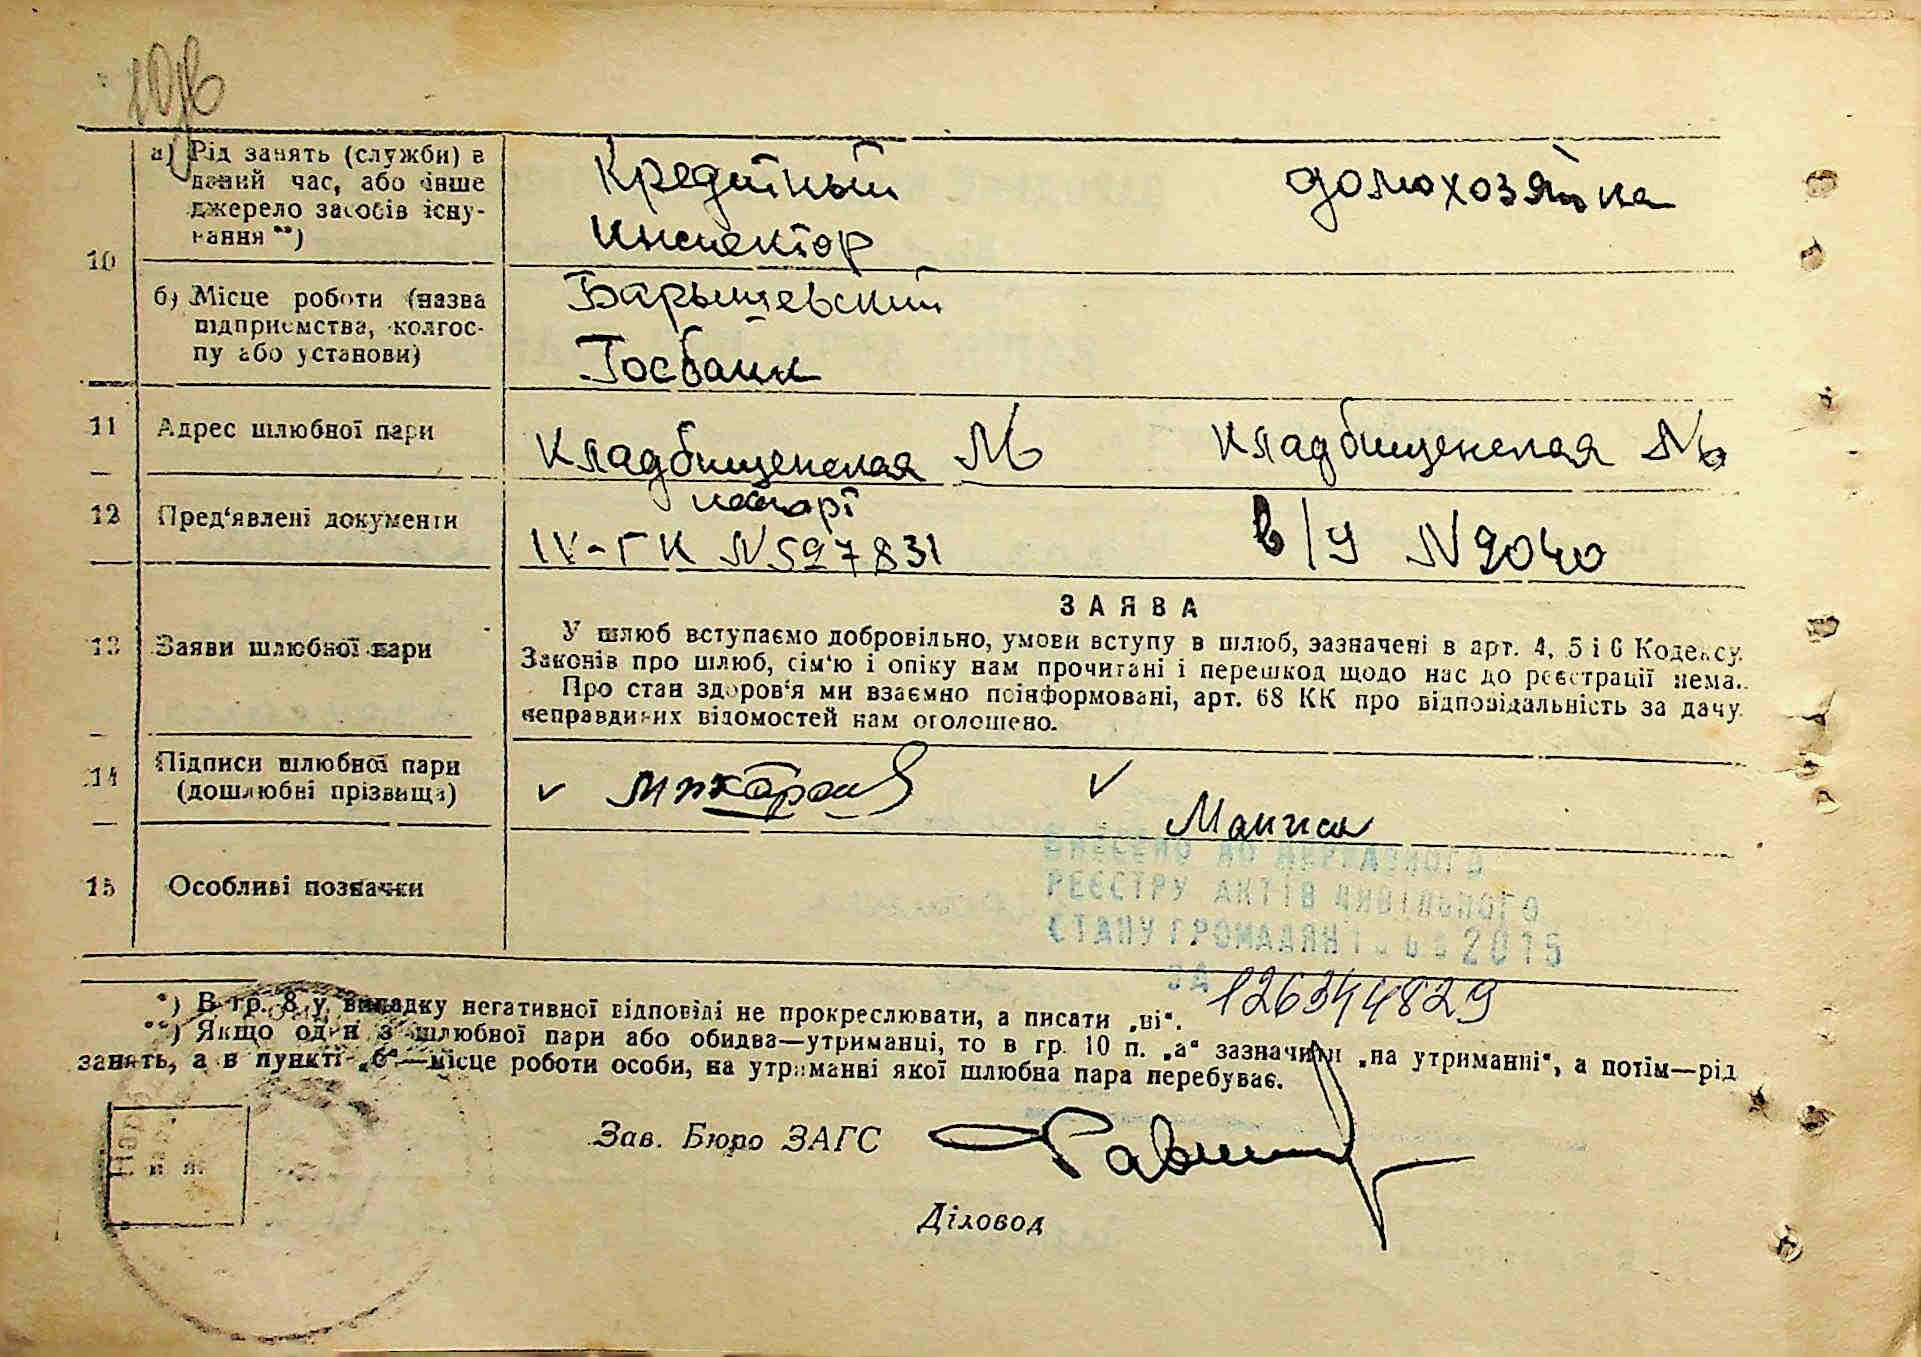 10
а) Рід занять (служби) в
даний час, або інше
джерело засобів існу-
вання **)
Кредитный
Инспектор
домохозяйка
б) Місце роботи (назва
підприємства, колгос-
пу або установи)
Барышевский
Госбанк
11 Адрес шлюбної пари
Кладбищенская № Кладбищенская №
12 Пред'явлені документи
IV-ГК N 597831
в/у N 9040
13 Заяви шлюбної пари
ЗАЯВА
У шлюб вступаємо добровільно, умови вступу в шлюб, зазначені в арт. 4, 5 і 6 Кодексу
Законів про шлюб, сім'ю і опіку нам прочитані і перешкод щодо нас до реєстрації нема.
Про стан здоров'я ми взаємно поінформовані, арт. 68 КК про відповідальність за дачу
неправдивих відомостей нам оголошено.
14 Підписи шлюбної пари
(дошлюбні прізвища)
15 Особливі позначки
ВНЕСЕНО ДО ДЕРЖАВНОГО
РЕЄСТРУ АКТІВ ЦИВІЛЬНОГО
СТАНУ ГРОМАДЯН 2015
ЗА 126344829
*) В гр. 8 у випадку негативної відповіді не прокреслювати, а писати „ні“.
**) Якщо один з шлюбної пари або обидва—утриманці, то в гр. 10 п. „а“ зазначити „на утриманні“, а потім—рід
занять, а в пункті „б“—місце роботи особи, на утриманні якої шлюбна пара перебуває.
Зав. Бюро ЗАГС
Діловод